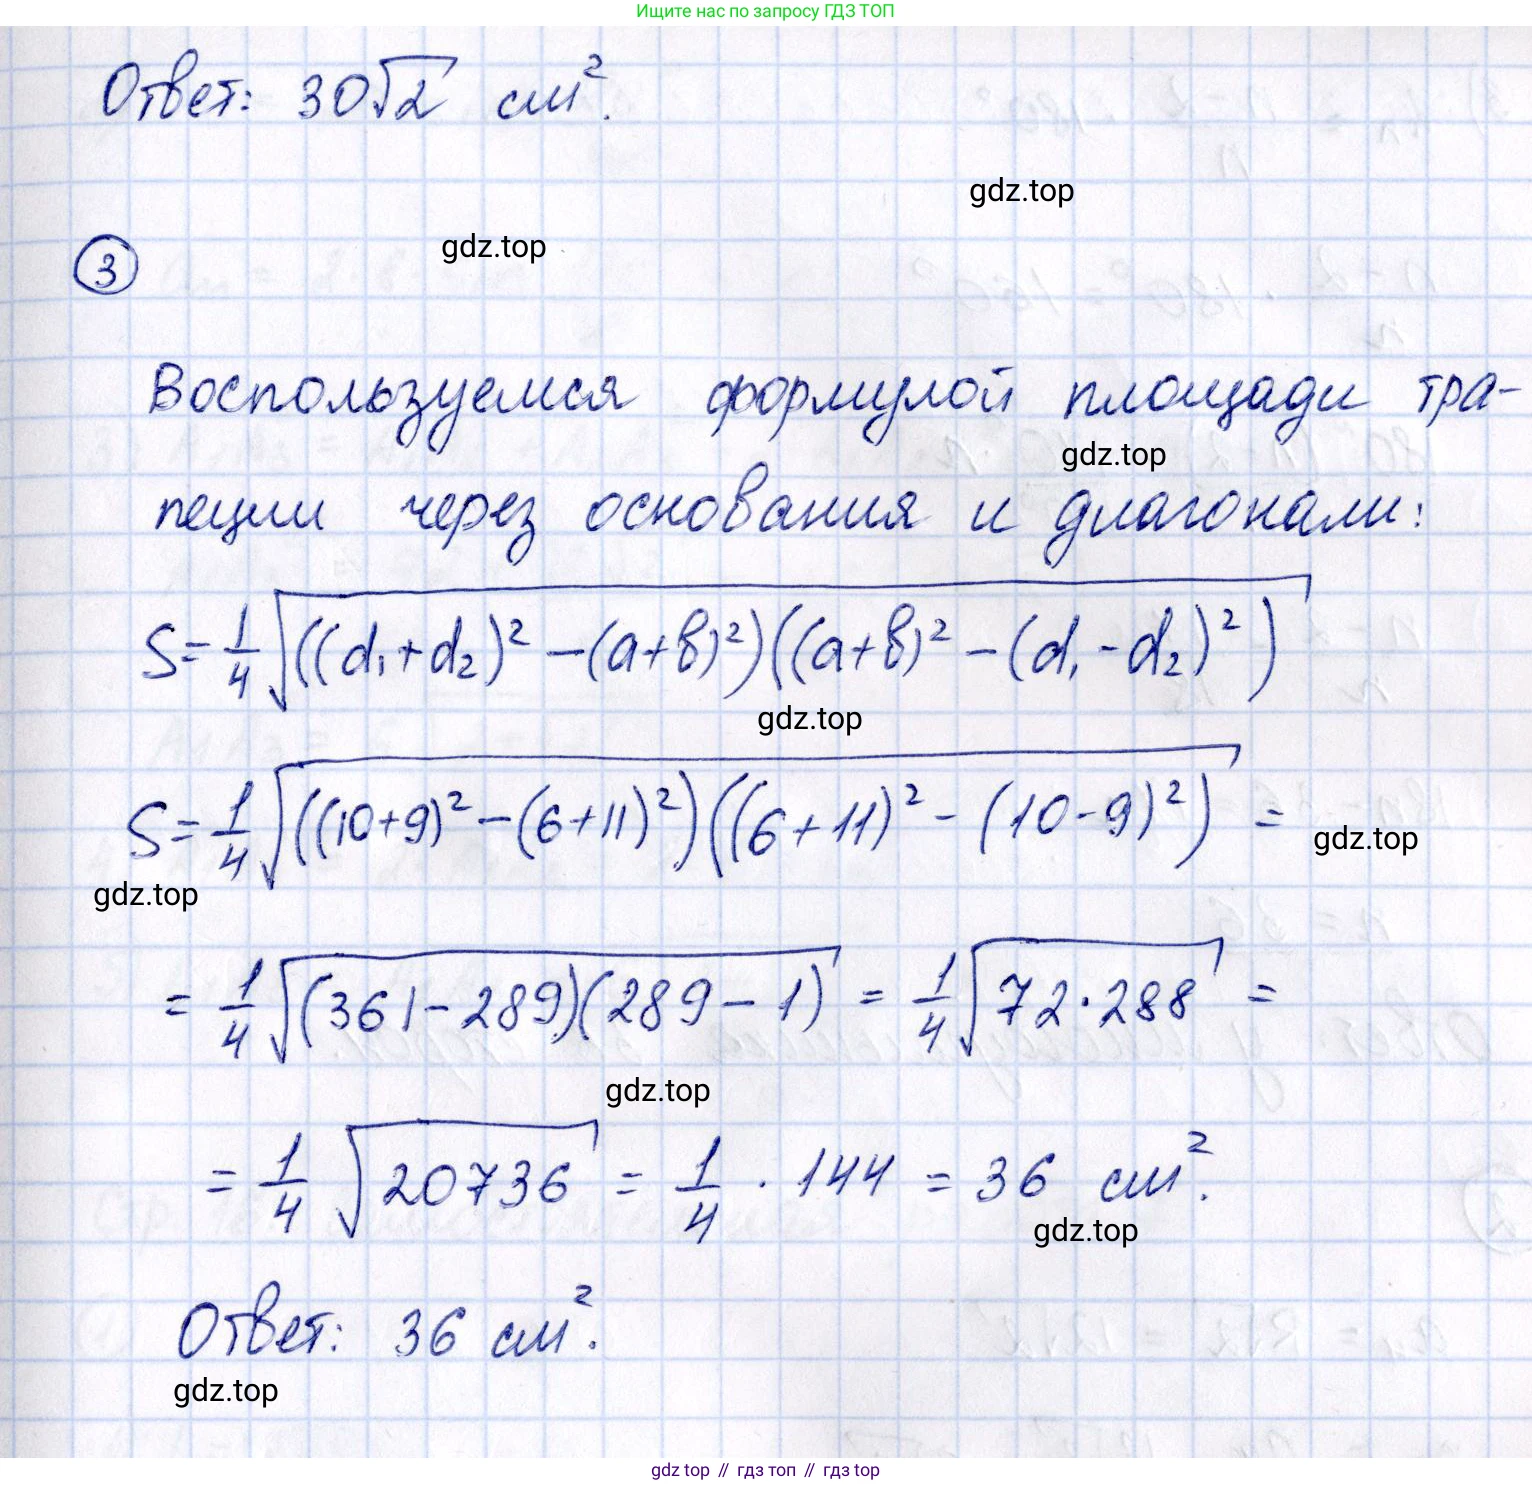 Ищите нас по запросу ГДЗ ТОП
Ответ: 30√2 см².
gdz.top
gdz.top
3
Воспользуемся формулой площади тра-
gdz.top
пеции через основания и диагонали:
S = 1/4 √((d₁+d₂)² – (a+b)²)((a+b)² – (d₁-d₂)²)
gdz.top
S = 1/4 √((10+9)² – (6+11)²)((6+11)² – (10-9)²) =
gdz.top
gdz.top
= 1/4 √(361-289)(289-1) = 1/4 √72·288 =
gdz.top
= 1/4 √20736 = 1/4 · 144 = 36 см².
gdz.top
Ответ: 36 см².
gdz.top
gdz top // гдз топ // гдз top